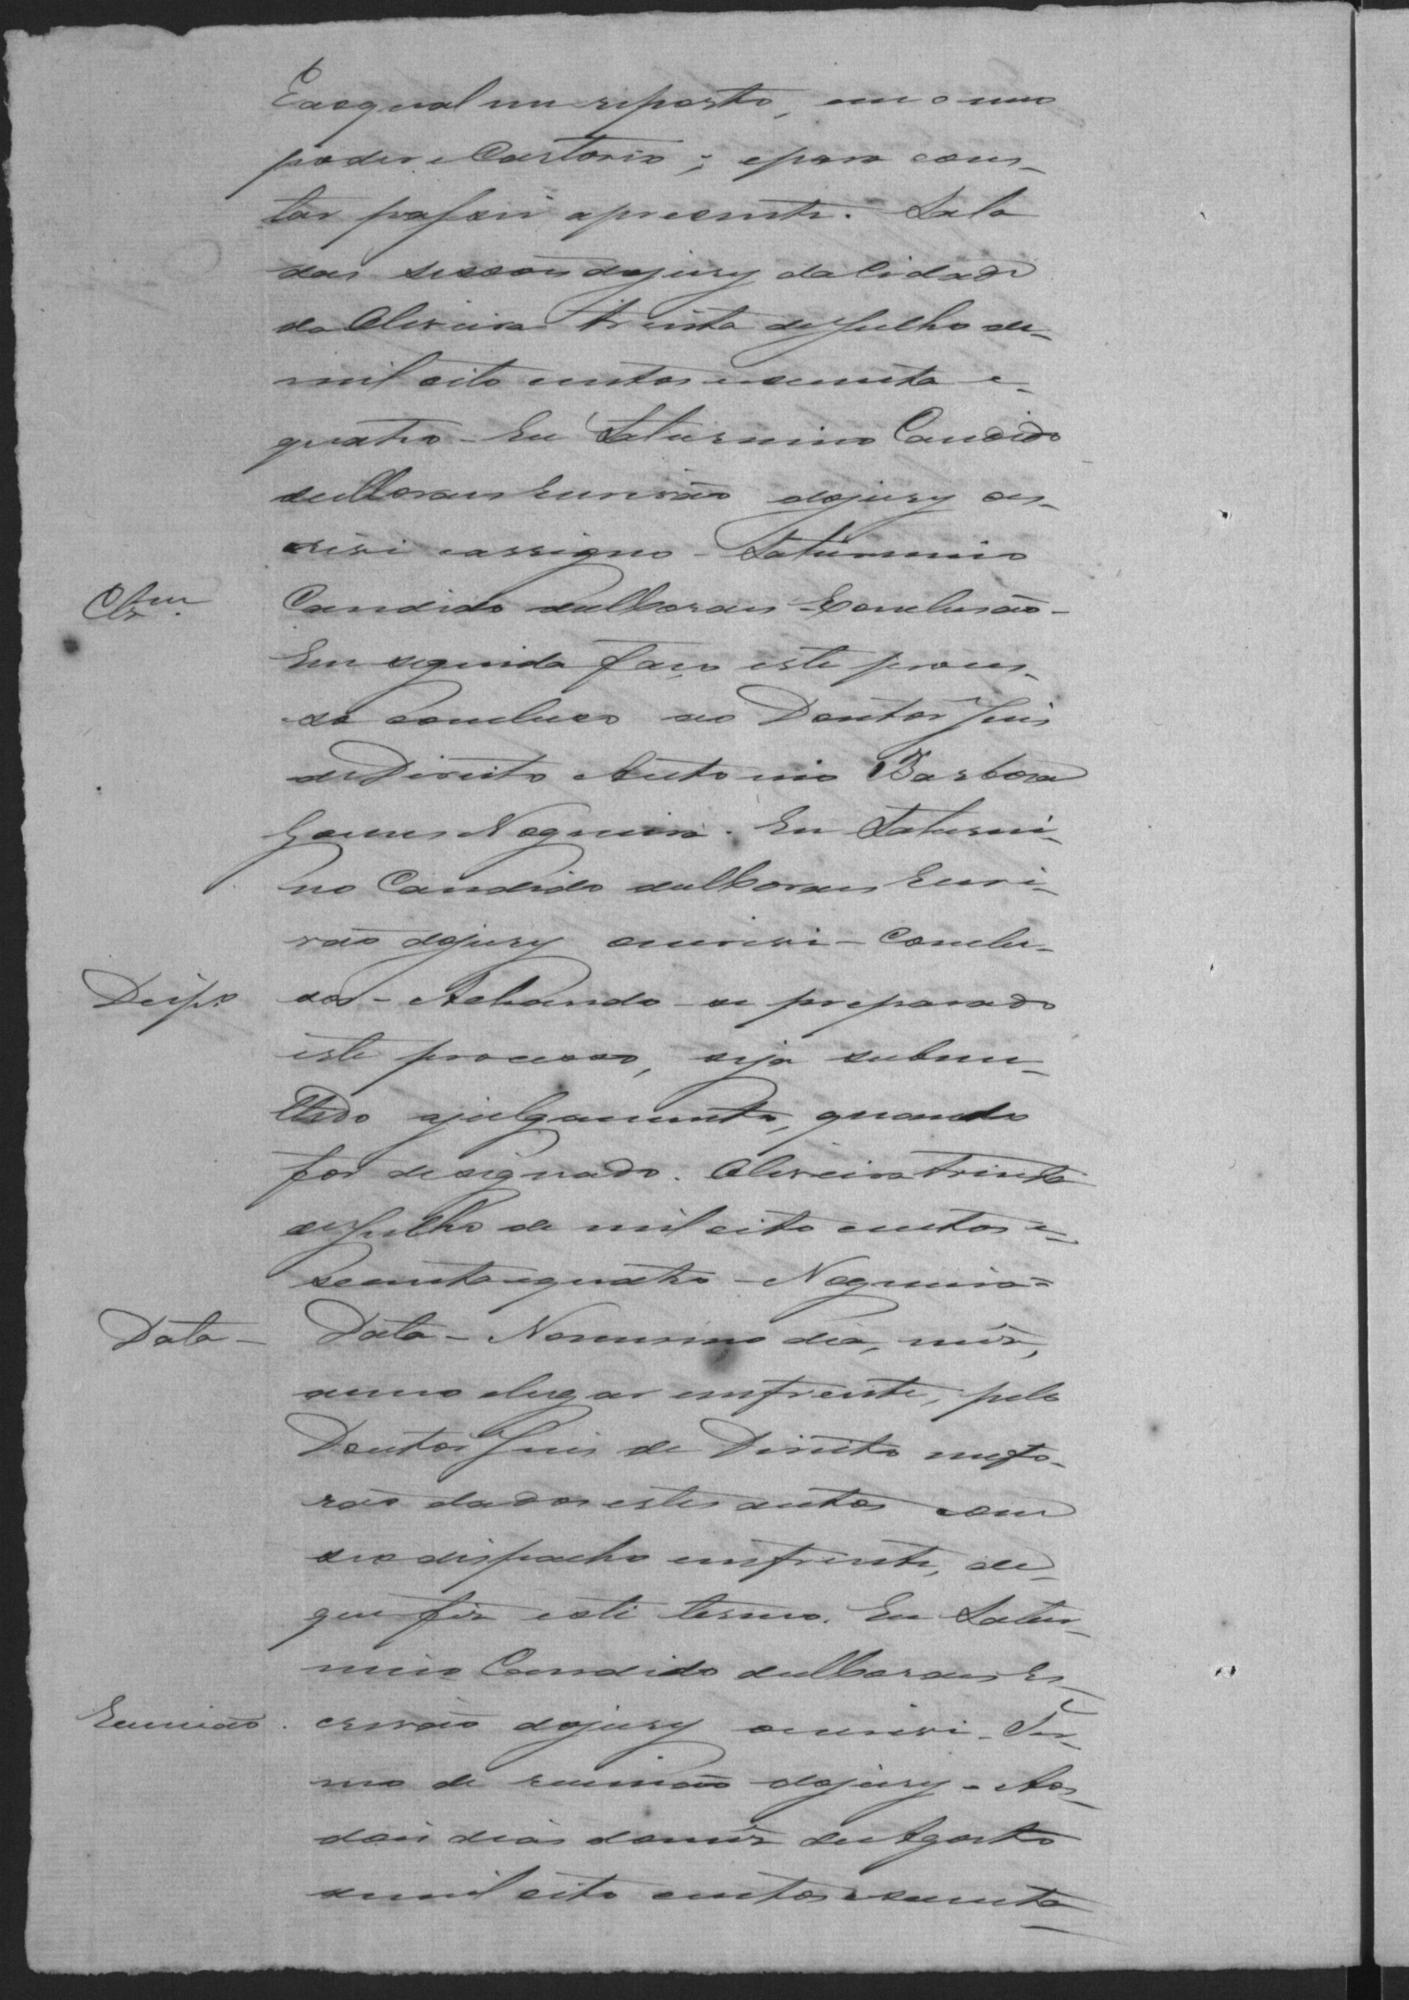 E aoqual me reporto, em o meo
poder e Cartorio; epara cons-
tar passei apresente. Sala
das sessoes dojury da Cidade
da Oliveira trinta de Julho de-
mil oito centos esecenta e-
quatro - Eu Saturnino Candido
de Moraes Escrivão dojury es-
crivi eassigno - Saturnino
Clzm. Candido de Moraes - Conclusão -
Em seguida faço este proces-
so concluso ao Doutor Juis
de Direito Antonio Barbosa
Gomes Nogueira. Eu Saturni-
no Candido de Moraes Escri-
vão dojury escrivi - Conclu-
Desp.o sos - Achando-se preparado
este processo, seja subme-
ttido ajulgamento, quando
for designado. Oliveira trinta
de Julho de mil oito centos e-
secenta equatro - Nogueira =
Data - Data - Nomesmo dia, mês,
anno elugar emfrente, pelo
Doutor Juis de Direito mefo-
rão dados estes autos com
seo dispacho emfrente, de-
que fiz este termo. Eu Satur-
nino Candido de Moraes Es-
Reunião. crivão dojury escrivi - Ter-
mo de reunião dojury - Aos-
dois dias domês de Agosto
demil oito centos esecenta